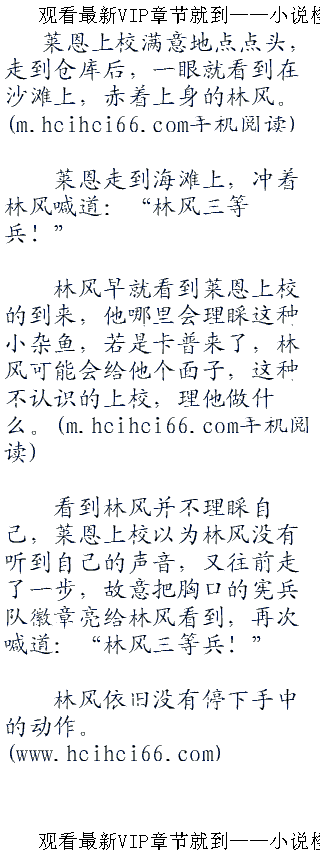 观看最新VIP章节就到——小说楼
莱恩上校满意地点点头，
走到仓库后，一眼就看到在
沙滩上，赤着上身的林风。
(m.hcihci66.com手机阅读)
莱恩走到海滩上，冲着
林风喊道：“林风三等
兵！”
林风早就看到莱恩上校
的到来，他哪里会理睬这种
小杂鱼，若是卡普来了，林
风可能会给他个面子，这种
不认识的上校，理他做什
么。(m.hcihci66.com手机阅
读)
看到林风并不理睬自
己，莱恩上校以为林风没有
听到自己的声音，又往前走
了一步，故意把胸口的宪兵
队徽章亮给林风看到，再次
喊道：“林风三等兵！”
林风依旧没有停下手中
的动作。
(www.hcihci66.com)
观看最新VIP章节就到——小说楼